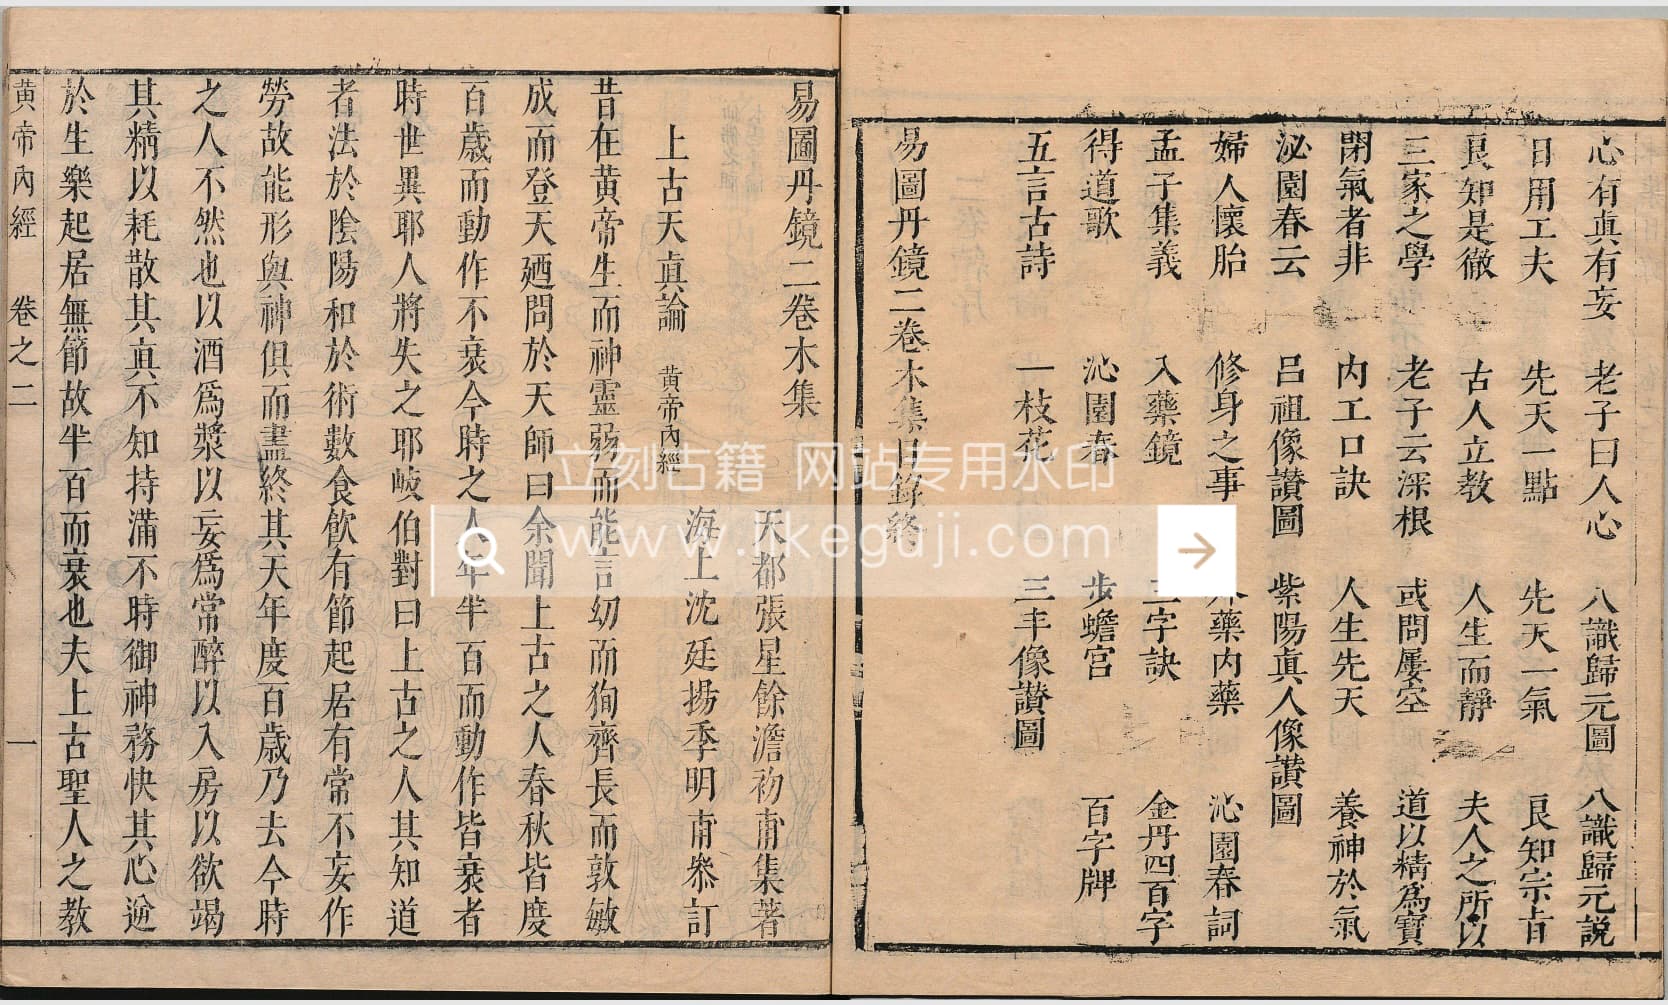 心有眞有妄　老子曰人心　八識歸元圖　八識歸元說
日用工夫　先天一點　先天一氣　良知宗旨
良知是徹　古人立教　人生而靜　夫人之所以
三家之學　老子云深根　或問屢空　道以精爲寶
閉氣者非　內工口訣　人生先天　養神於氣
泌園春云　呂祖像讃圖　紫陽眞人像讃圖
婦人懷胎　修身之事　藥內藥　沁園春詞
孟子集義　入藥鏡　三字訣　金丹四百字
得道歌　沁園春　步蟾宮　百字牌
五言古詩　一枝花　三丰像讃圖
易圖丹鏡二卷木集目錄終
易圖丹鏡二卷木集
天都張星餘澹初甫集著
上古天眞論　黃帝內經　海上沈廷揚季明甫叅訂
昔在黃帝生而神靈弱而能言幼而狥齊長而敦敏
成而登天廼問於天師曰余聞上古之人春秋皆度
百歲而動作不衰今時之人年半百而動作皆衰者
時世異耶人將失之耶岐伯對曰上古之人其知道
者法於陰陽和於術數食飲有節起居有常不妄作
勞故能形與神俱而盡終其天年度百歲乃去今時
之人不然也以酒爲漿以妄爲常醉以入房以欲竭
其精以耗散其眞不知持滿不時御神務快其心逆
於生樂起居無節故半百而衰也夫上古聖人之教
黃帝內經　卷之二　一
立刻古籍 网站专用水印
www.rkeguji.com